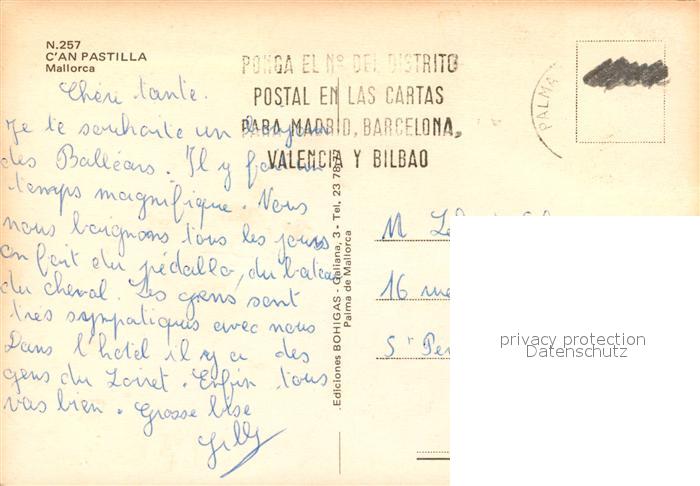 N.257
C'AN PASTILLA
Mallorca
PONGA EL Nº DEL DISTRITO
POSTAL EN LAS CARTAS
PARA MADRID, BARCELONA,
VALENCIA Y BILBAO
PALMA
Chère tante.
Je te souhaite un
des Balléars. Il y fait un
temps magnifique. Nous
nous baignons tous les jours
on fait du pédallo, du bateau
du cheval. Les gens sont
très sympatiques avec nous
Dans l'hôtel il y a des
gens du Loiret. Enfin tous
vas bien. Grosse bise
Ediciones BOHIGAS - Galiana, 3 - Tel. 23 78
Palma de Mallorca
M
16 rue
privacy protection
Datenschutz